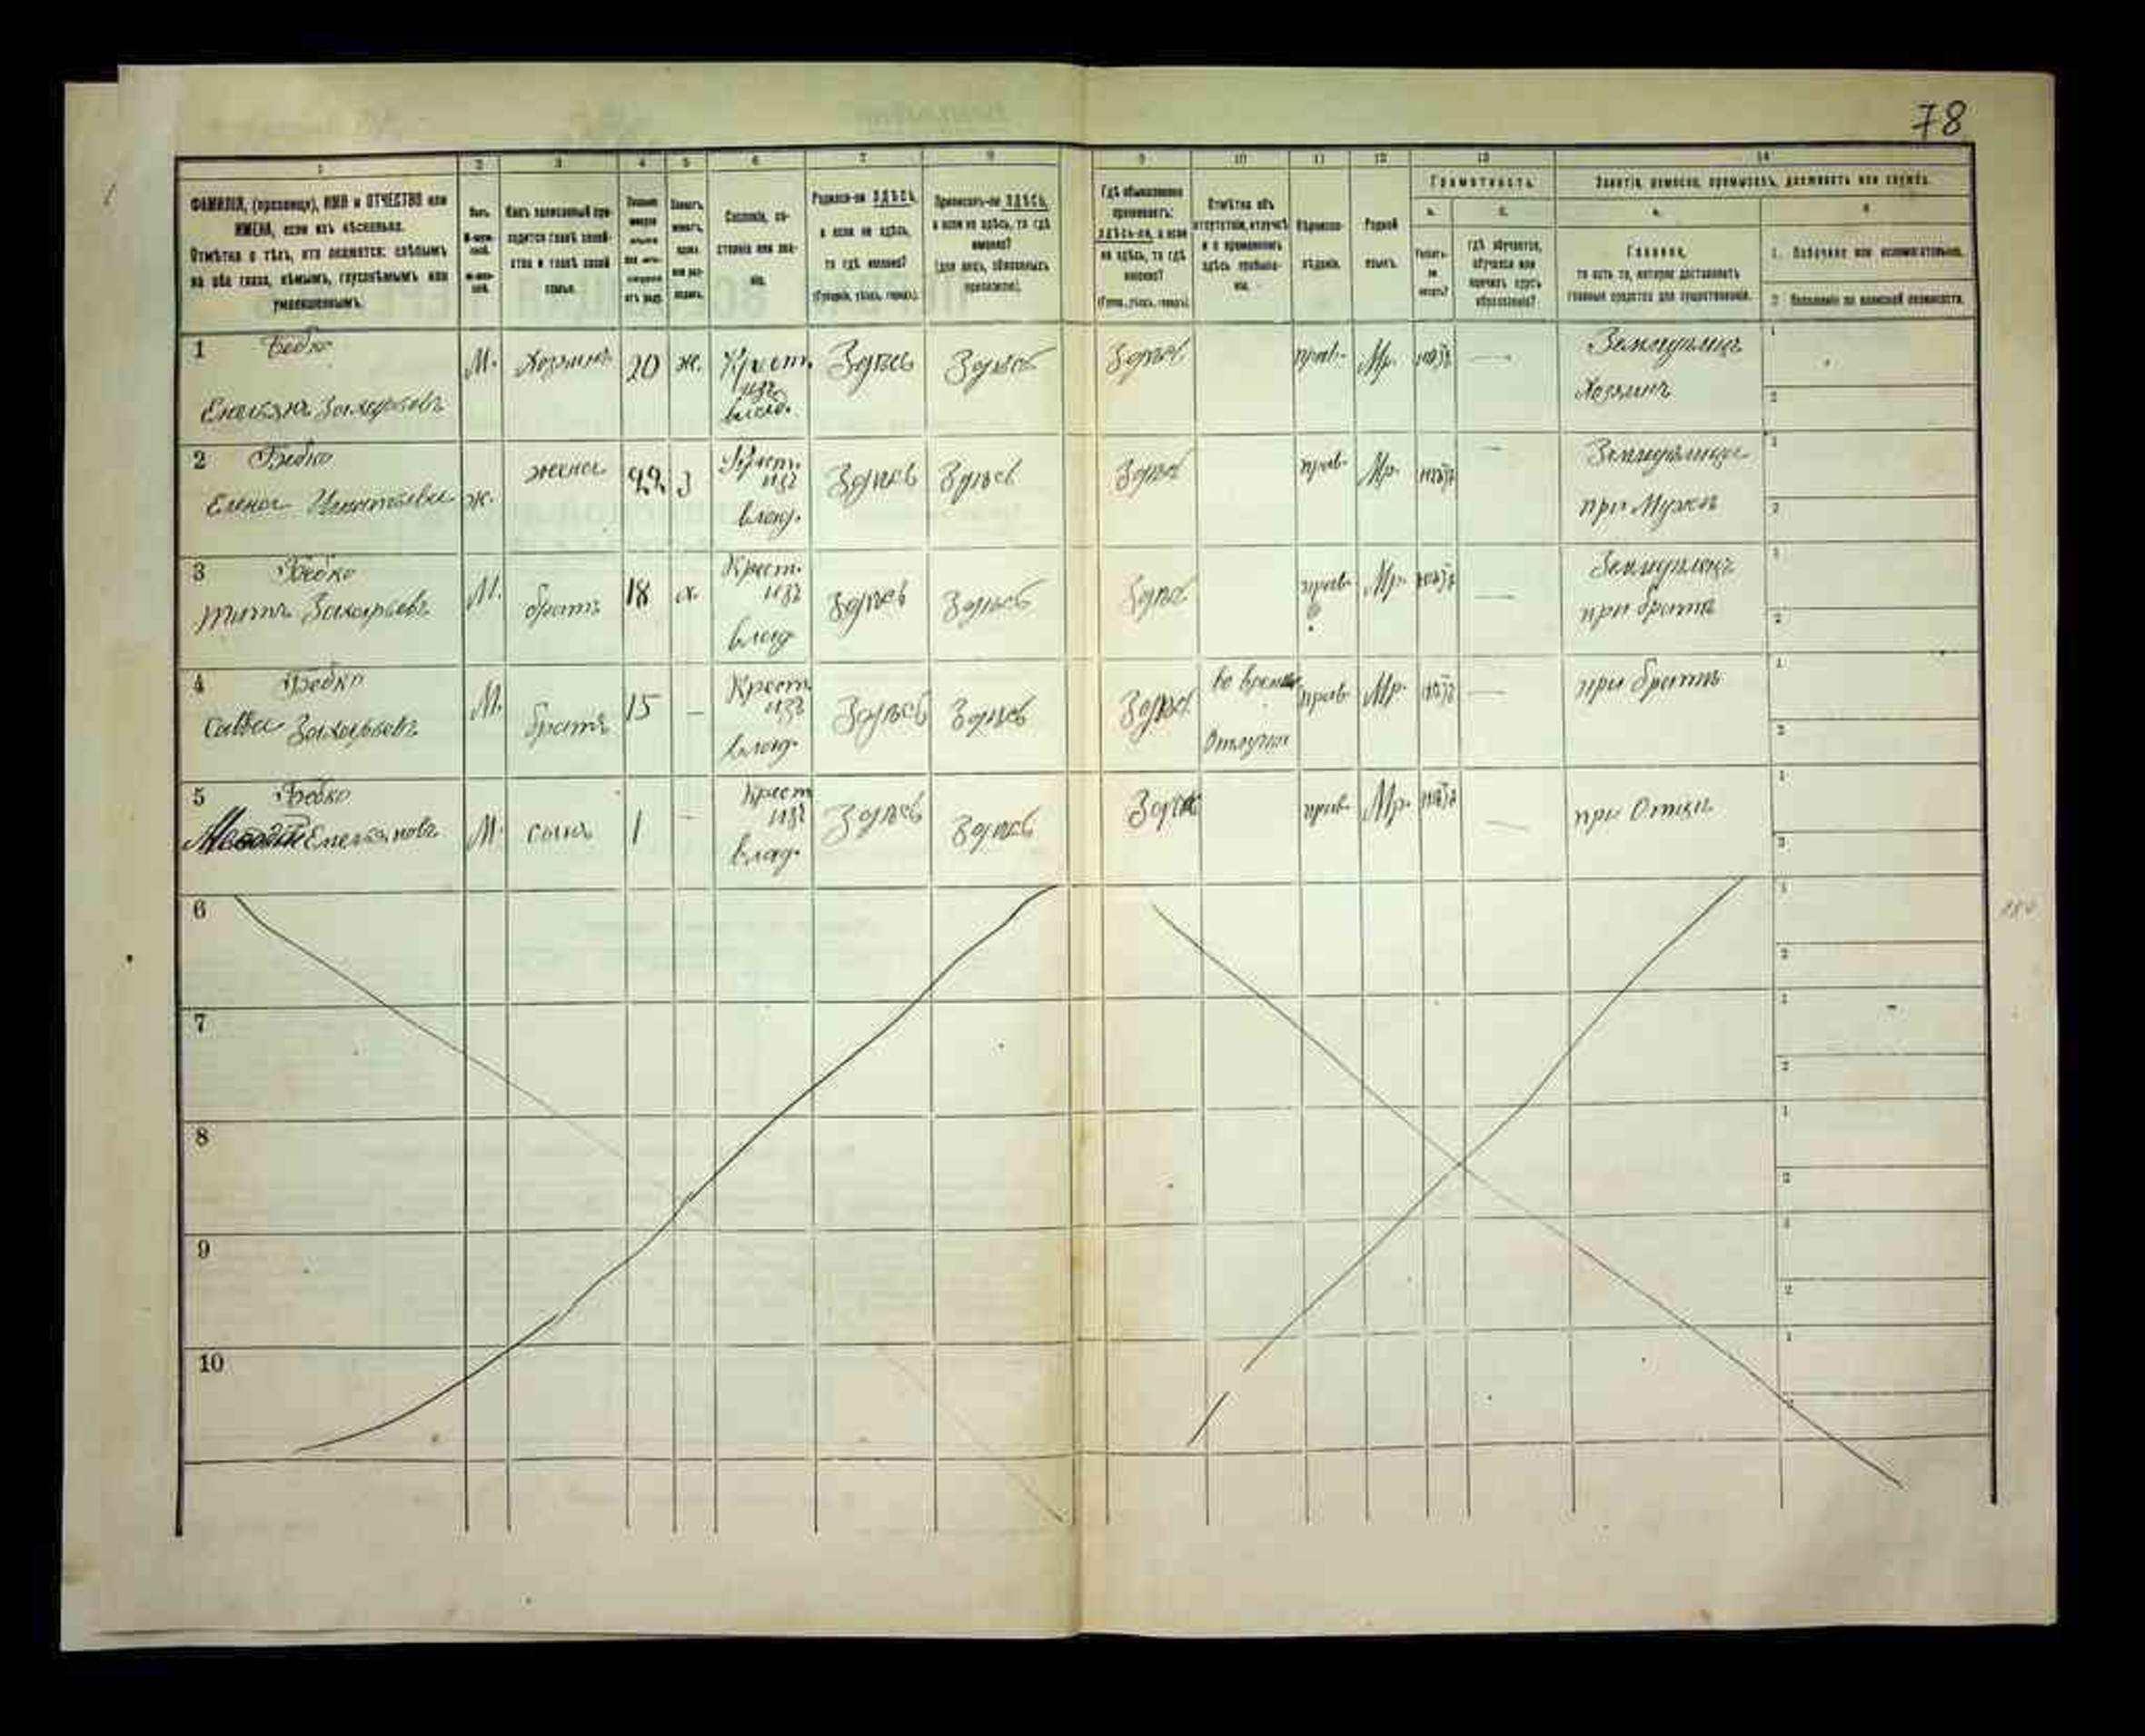 78
1 2 3 4 5 6 7 8 9 10 11 12 13 14
ФАМИЛІЯ, (прозвище), ИМЯ и ОТЧЕСТВО или
ИМЕНА, если ихъ нѣсколько.
Отмѣтка о тѣхъ, кто окажется: слѣпымъ
на оба глаза, нѣмымъ, глухонѣмымъ или
умалишеннымъ.
Какъ записанный при-
ходится главѣ хозяй-
ства и главѣ своей
семьи.
Сословіе, со-
стояніе или зва-
ніе.
Родился-ли ЗДѢСЬ,
а если не здѣсь,
то гдѣ именно?
(Губернія, уѣздъ, городъ).
Приписанъ-ли ЗДѢСЬ,
а если не здѣсь, то гдѣ
именно?
(для лицъ, обязанныхъ
припискою).
Гдѣ обыкновенно
проживаетъ:
здѣсь-ли, а если
не здѣсь, то гдѣ
именно?
(Губ., уѣздъ, городъ).
Отмѣтка объ
отсутствіи, отлучкѣ
и о временномъ
здѣсь пребыва-
ніи.
Вѣроиспо-
вѣданіе.
Родной
языкъ.
Грамотность.
а. б.
Умѣетъ-
ли
читать?
гдѣ обучается,
обучался или
кончилъ курсъ
образованія?
Занятіе, ремесло, промыселъ, должность или служба.
Главное,
то есть то, которое доставляетъ
главныя средства для существованія.
1. Побочное или вспомогательное.
2. Положеніе по воинской повинности.
1 Бебко
Емельянъ Захарьевъ М. Хозяинъ 20 ж. Крест. изъ влад. Здѣсь Здѣсь Здѣсь прав. Мр. нѣтъ — Земледѣлецъ Хозяинъ
2 Бебко
Елена Игнатьева ж. жена 22 з Крест. изъ влад. Здѣсь Здѣсь Здѣсь прав. Мр. нѣтъ — Земледѣлица при Мужѣ
3 Бебко
Титъ Захарьевъ М. братъ 18 х. Крест. изъ влад Здѣсь Здѣсь Здѣсь прав. Мр. нѣтъ — Земледѣлецъ при братѣ
4 Бебко
Савва Захарьевъ М. братъ 15 — Крест. изъ влад. Здѣсь Здѣсь Здѣсь во врем. Отлучкѣ прав. Мр. нѣтъ — при братѣ
5 Бебко
Емельяновъ М. сынъ 1 — Крест изъ влад. Здѣсь Здѣсь Здѣсь прав. Мр. нѣтъ — при Отцѣ
6
7
8
9
10